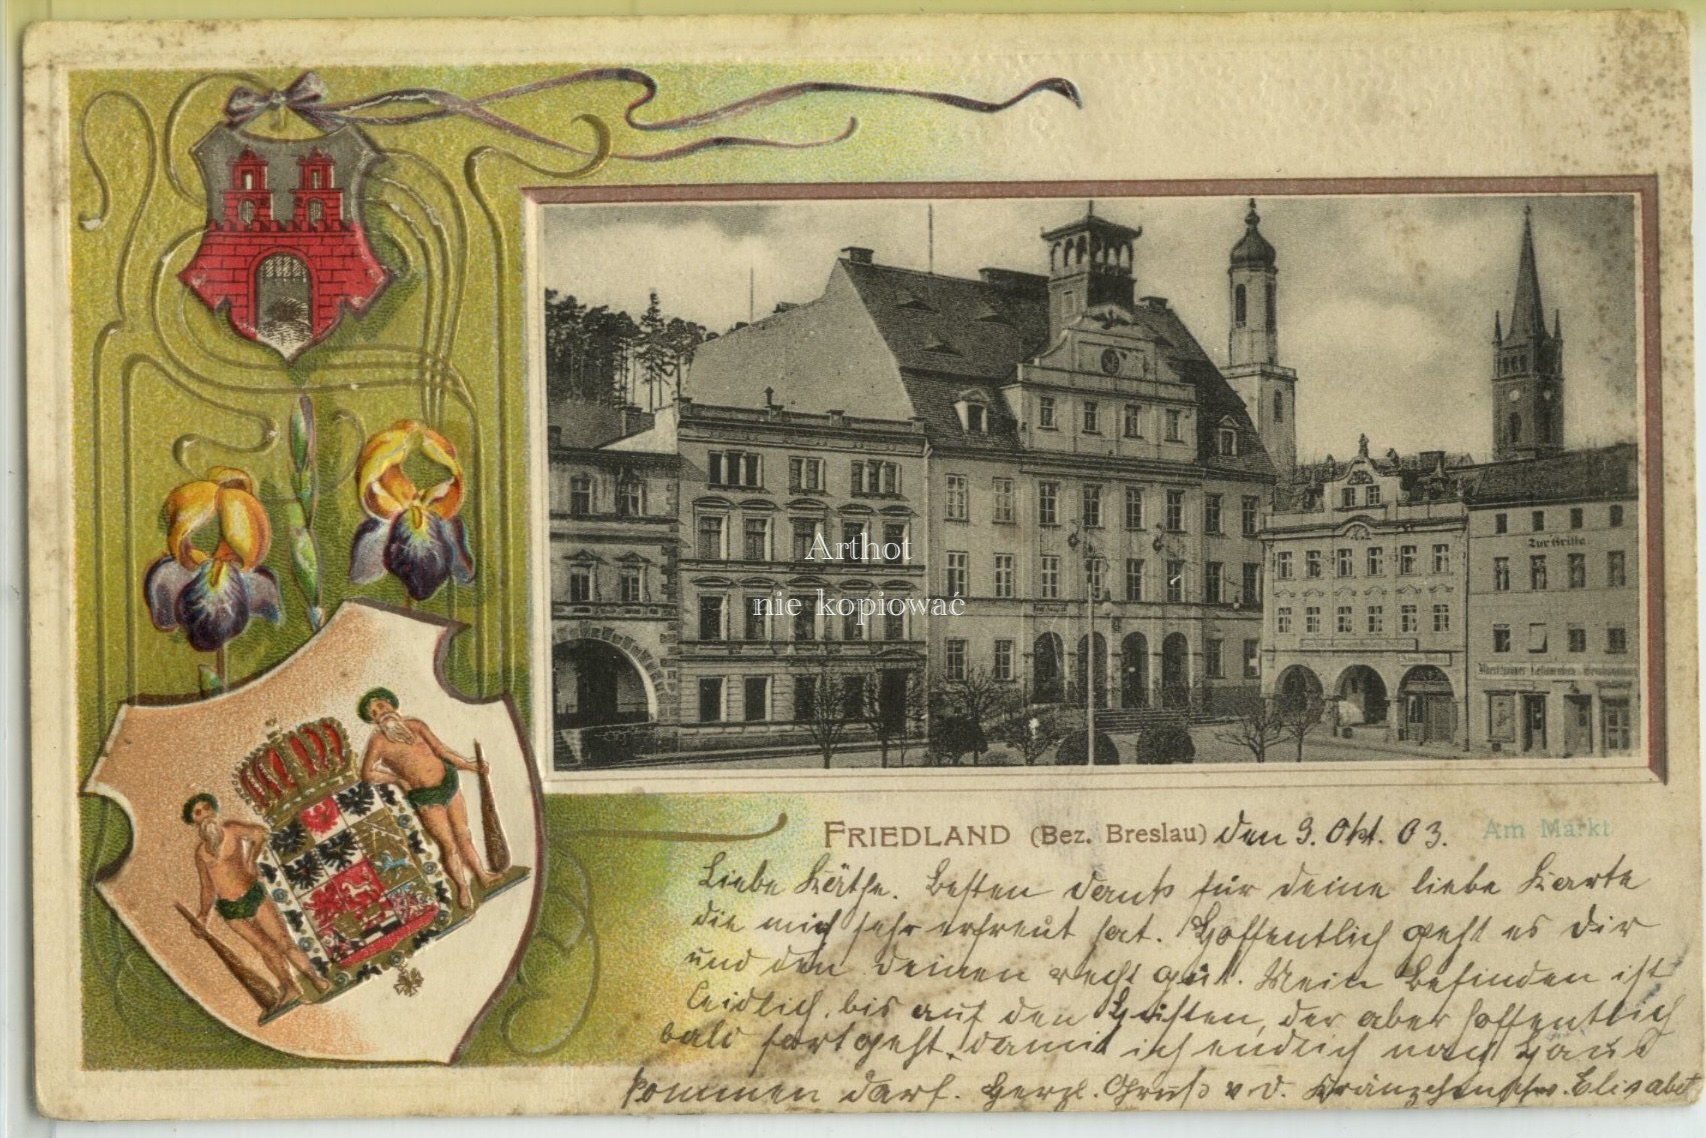 Arthot
nie kopiować
Zur Hilfe
FRIEDLAND (Bez. Breslau) den 9. Okt. 03. Am Markt
Liebe Käthe. Besten Dank für deine liebe Karte
die mich sehr erfreut hat. Hoffentlich geht es dir
und den deinen recht gut. Mein Befinden ist
leidlich, bis auf den Husten, der aber hoffentlich
bald fortgeht, damit ich endlich nach Haus
kommen darf. Herzl. Gruß v. d. Elisabet